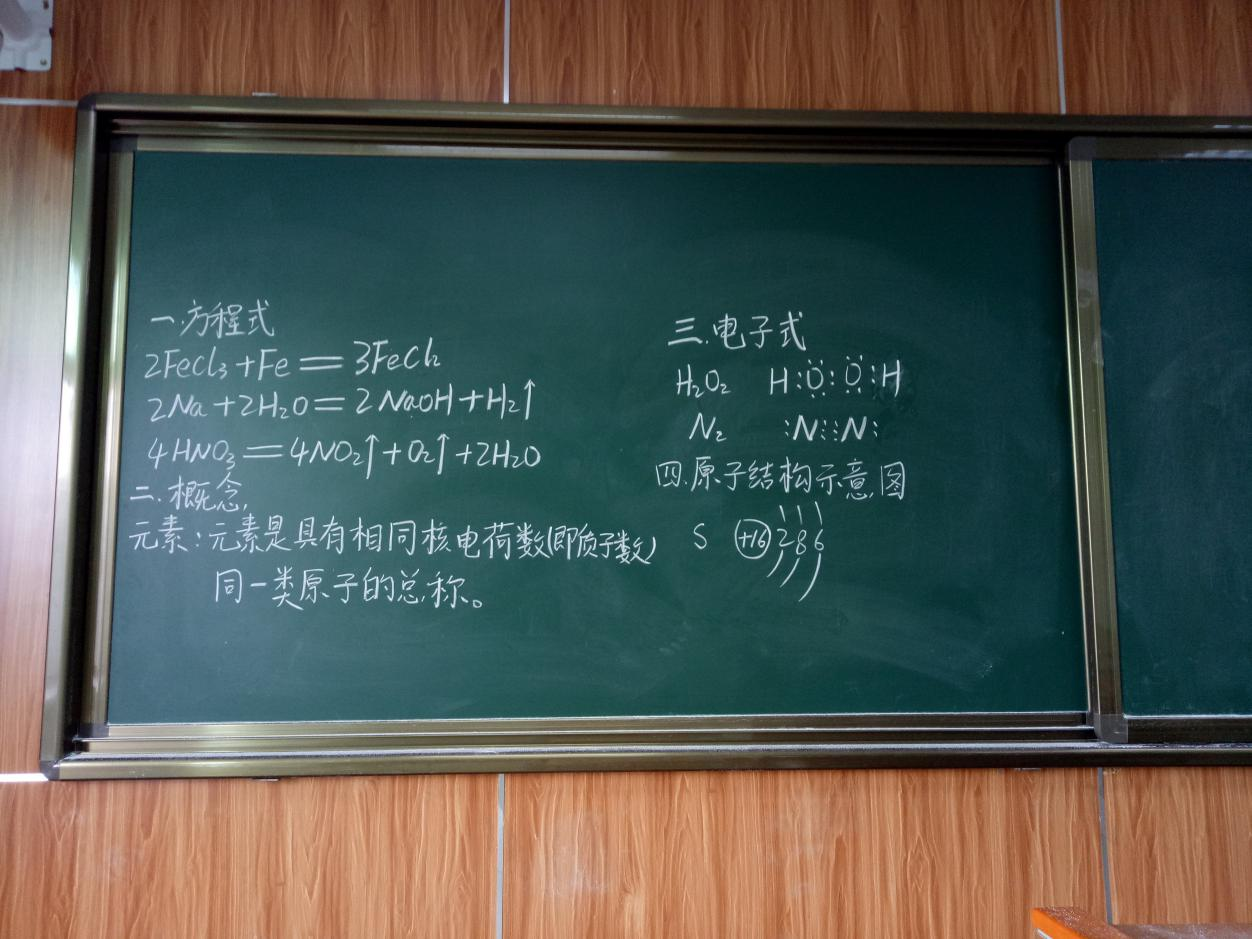 一.方程式
2FeCl₃+Fe=3FeCl₂
2Na+2H₂O=2NaOH+H₂↑
4HNO₃=4NO₂↑+O₂↑+2H₂O
二.概念
元素:元素是具有相同核电荷数(即质子数)
同一类原子的总称。
三.电子式
H₂O₂ H:Ö:Ö:H
N₂ :N⋮⋮N:
四.原子结构示意图
S +16 2 8 6